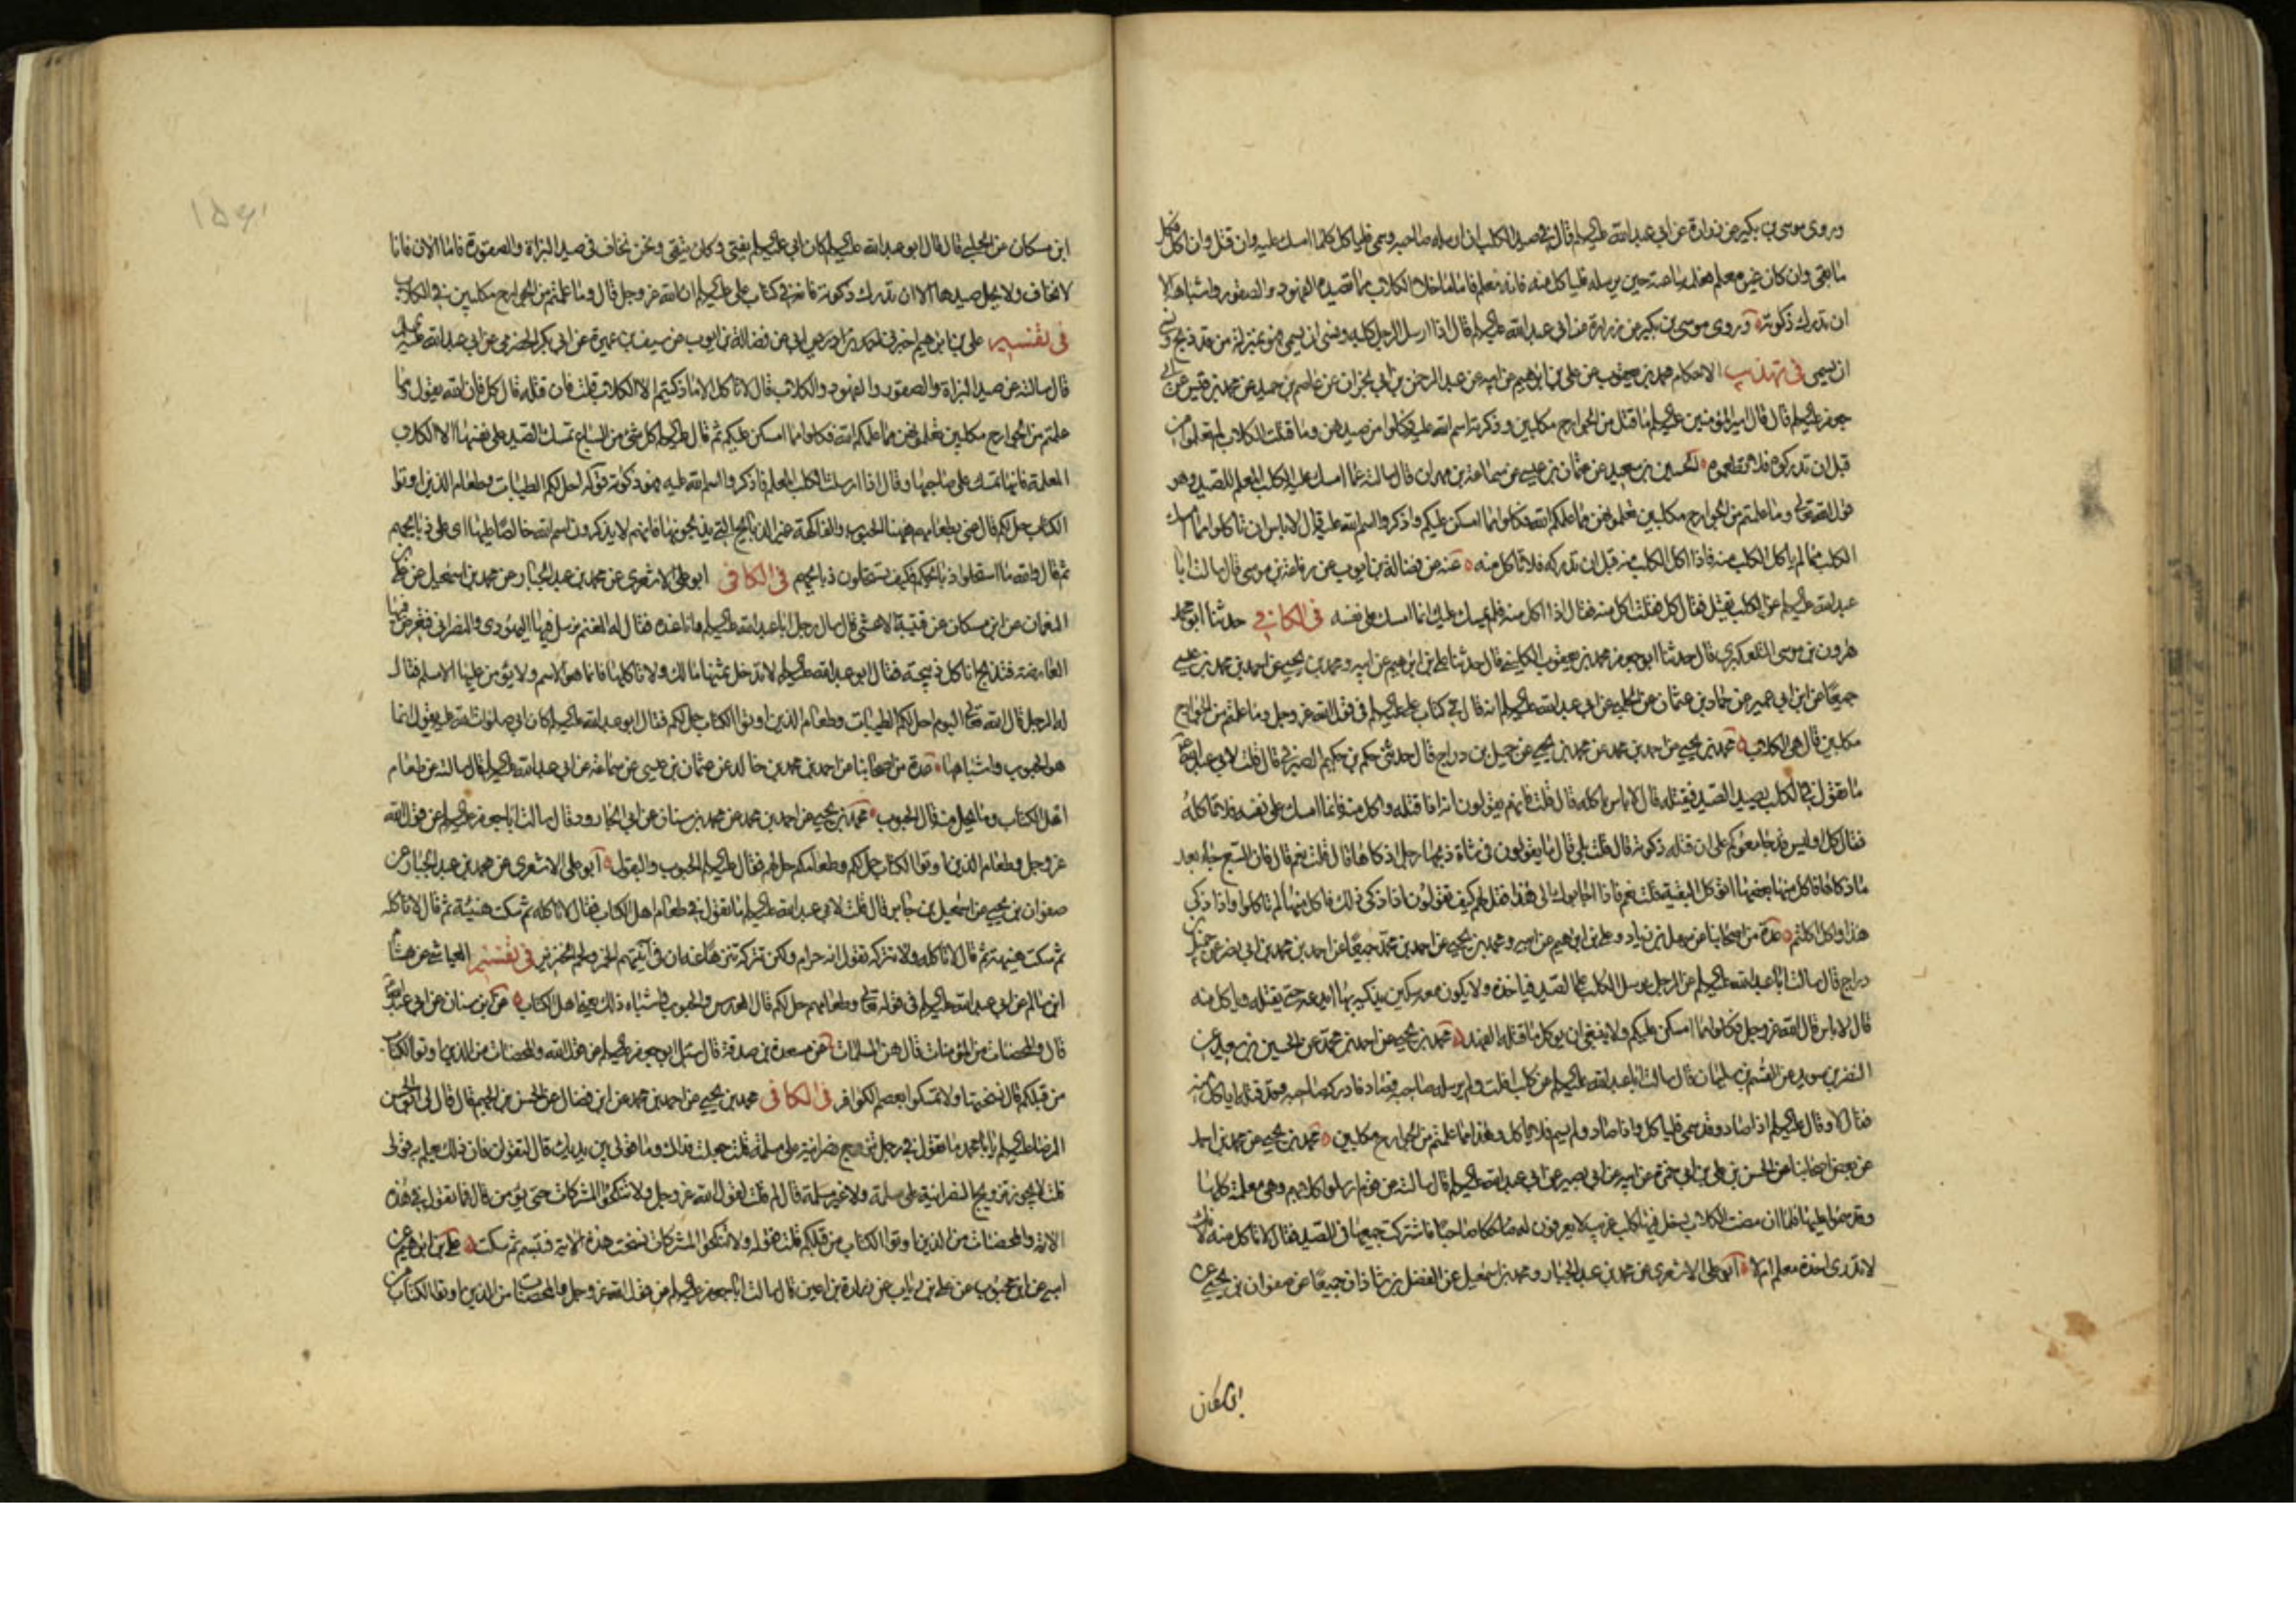 وروى موسى بن بكير عن زرارة عن ابي عبد الله عليه السلم قال في صيد الكلب ان ارسله صاحبه وسمى فلياكل كلما امسك عليه وان قتل وان اكل فكل
ما بقى وان كان غير معلم فعلمه ساعته حين يرسله فلياكل منه فانه معلم فاما ما خلا الكلاب مما تصيده الفهود والصقور واشباهه الا
ان تدرك ذكوته وروى موسى بن بكير عن زرارة عن ابي عبد الله عليه السلم قال اذا ارسل الرجل كلبه ونسى ان يسمى فهو بمنزلة من قد ذبح ونسى
ان يسمى في تهذيب الاحكام محمد بن يعقوب عن علي بن ابراهيم عن ابيه عن عبد الرحمن بن ابي نجران عن عاصم بن حميد عن محمد بن قيس عن ابي
جعفر عليه السلم قال قال امير المؤمنين عليه السلم ما قتل من الجوارح مكلبين وذكرتم اسم الله عليه فكلوا من صيدهن وما قتلت الكلاب لم تعلموا من
قبل ان تدركوه فلا تطعموه الحسين بن سعيد عن عثمان بن عيسى عن سماعة بن مهران قال سالته عما امسك عليه الكلب المعلم للصيد وهو
قول الله تعالى وما علمتم من الجوارح مكلبين تعلمونهن مما علمكم الله فكلوا مما امسكن عليكم واذكروا اسم الله عليه قال لا باس ان تاكلوا مما امسك
الكلب مما لم ياكل الكلب منه فاذا اكل الكلب منه قبل ان تدركه فلا تاكل منه عنه عن فضالة بن ايوب عن رفاعة بن موسى قال سالت ابا
عبد الله عليه السلم عن الكلب يقتل فقال كل فقلت اكل منه فقال اذا اكل منه فلم يمسك عليك انما امسك على نفسه في الكافي حدثنا ابو محمد
هارون بن موسى التلعكبري قال حدثنا ابو جعفر محمد بن يعقوب الكليني قال حدثنا علي بن ابراهيم عن ابيه ومحمد بن يحيى عن احمد بن محمد بن عيسى
جميعا عن ابن ابي عمير عن حماد بن عثمان عن الحلبي عن ابي عبد الله عليه السلم انه قال في كتاب علي عليه السلم في قول الله عز وجل وما علمتم من الجوارح
مكلبين قال هي الكلاب محمد بن يحيى عن احمد بن محمد عن محمد بن يحيى عن جميل بن دراج قال حدثني حكم بن حكيم الصيرفي قال قلت لابي عبد الله عليه السلم
ما تقول في الكلب يصيد الصيد فيقتله قال لا باس باكله قال قلت فانهم يقولون انه اذا قتله واكل منه فانما امسك على نفسه فلا تاكله
فقال كل اوليس قد جامعوكم على ان قتله ذكوته قال قلت بلى قال فما يقولون في شاة ذبحها رجل اذكاها قال قلت نعم قال فان السبع جاء بعد
ما ذكاها فاكل منها بعضها اتؤكل البقية قلت نعم فاذا اجابوك الى هذا فقل لهم كيف تقولون اذا ذكى ذلك فاكل منها لم تاكلوا واذا ذكى
هذا واكل اكلتم عدة من اصحابنا عن سهل بن زياد وعلي بن ابراهيم عن ابيه ومحمد بن يحيى عن احمد بن محمد جميعا عن احمد بن محمد بن ابي نصر عن جميل بن
دراج قال سالت ابا عبد الله عليه السلم عن الرجل يرسل الكلب على الصيد فياخذه ولا يكون معه سكين يذكيه بها ايدعه حتى يقتله وياكل منه
قال لا باس قال الله عز وجل فكلوا مما امسكن عليكم ولا ينبغي ان يؤكل ما قتله الفهد محمد بن يحيى عن احمد بن محمد عن الحسين بن سعيد عن
النضر بن سويد عن القسم بن سليمان قال سالت ابا عبد الله عليه السلم عن كلب افلت ولم يرسله صاحبه فصاد فادركه صاحبه وقد قتله اياكل منه
فقال لا وقال عليه السلم اذا صاد وقد سمى فلياكل واذا صاد ولم يسم فلا ياكل وهذا مما علمتم من الجوارح مكلبين محمد بن يحيى عن محمد بن احمد
عن بعض اصحابنا عن الحسن بن علي بن ابي حمزة عن ابيه عن ابي بصير عن ابي عبد الله عليه السلم قال سالته عن قوم ارسلوا كلابهم وهي معلمة كلها
وقد سموا عليها فلما ان مضت الكلاب دخل فيها كلب غريب لا يعرفون له صاحبا فاشتركت جميعها في الصيد فقال لا تاكل منه لانك
لا تدري اخذه معلم ام لا ابو علي الاشعري عن محمد بن عبد الجبار ومحمد بن اسمعيل عن الفضل بن شاذان جميعا عن صفوان بن يحيى عن
ابن مسكان
ابن مسكان عن الحلبي قال قال ابو عبد الله عليه السلم كان ابي عليه السلم يفتى وكان يتقى ونحن نخاف في صيد البزاة والصقورة فاما الان فانا
لا نخاف ولا يحل صيدها الا ان تدرك ذكوته فانه في كتاب علي عليه السلم ان الله عز وجل قال وما علمتم من الجوارح مكلبين في الكلاب
في تفسير علي بن ابراهيم اخبرنا احمد بن ادريس عن فضالة بن ايوب عن سيف بن عميرة عن ابي بكر الحضرمي عن ابي عبد الله عليه السلم
قال سالته عن صيد البزاة والصقور والفهود والكلاب قال لا تاكل الا ما ذكيتم الا الكلاب قلت فان قتله قال كل فان الله يقول وما
علمتم من الجوارح مكلبين تعلمونهن مما علمكم الله فكلوا مما امسكن عليكم ثم قال عليه السلم كل شئ من السباع تمسك الصيد على نفسها الا الكلاب
المعلمة فانها تمسك على صاحبها وقال اذا ارسلت الكلب المعلم فاذكروا اسم الله عليه فهو ذكوته قوله احل لكم الطيبات وطعام الذين اوتوا
الكتاب حل لكم قال عنى بطعامهم ههنا الحبوب والفاكهة غير الذبائح التي يذبحونها فانهم لا يذكرون اسم الله خالصا عليها اي على ذبايحهم
ثم قال والله ما استحلوا ذبائحكم فكيف تستحلون ذبائحهم في الكافي ابو علي الاشعري عن محمد بن عبد الجبار عن محمد بن اسمعيل عن علي بن
النعمان عن ابن مسكان عن قتيبة الاعشى قال سال رجل ابا عبد الله عليه السلم وانا عنده فقال له الغنم يرسل فيها اليهودي والنصراني فتعرض فيها
العارضة فتذبح اناكل ذبيحته فقال ابو عبد الله عليه السلم لا تدخل ثمنها مالك ولا تاكلها فانما هو الاسم ولا يؤمن عليها الا مسلم فقال
له الرجل قال الله تعالى اليوم احل لكم الطيبات وطعام الذين اوتوا الكتاب حل لكم فقال ابو عبد الله عليه السلم كان ابي صلوات الله عليه يقول انما
هو الحبوب واشباهها عدة من اصحابنا عن احمد بن محمد بن خالد عن عثمان بن عيسى عن سماعة عن ابي عبد الله عليه السلم قال سالته عن طعام
اهل الكتاب وما يحل منه قال الحبوب محمد بن يحيى عن احمد بن محمد عن محمد بن سنان عن ابي الجارود قال سالت ابا جعفر عليه السلم عن قول الله
عز وجل وطعام الذين اوتوا الكتاب حل لكم وطعامكم حل لهم فقال عليه السلم الحبوب والبقول ابو علي الاشعري عن محمد بن عبد الجبار عن
صفوان بن يحيى عن اسمعيل بن جابر قال قلت لابي عبد الله عليه السلم ما تقول في طعام اهل الكتاب فقال لا تاكله ثم سكت هنيئة ثم قال لا تاكله
ثم سكت هنيهة ثم قال لا تاكله ولا تتركه تقول انه حرام ولكن تتركه تتنزها عنه ان في آنيتهم الخمر ولحم الخنزير في تفسير العياشي عن هشام
ابن سالم عن ابي عبد الله عليه السلم في قوله تعالى وطعامهم حل لكم قال العدس والحبوب واشباه ذلك يعني اهل الكتاب عن ابن سنان عن ابي عبد الله
قال والمحصنات من المؤمنات قال هن المسلمات عن مسعدة بن صدقة قال سئل ابو جعفر عليه السلم عن قول الله والمحصنات من الذين اوتوا الكتاب
من قبلكم قال نسختها ولا تمسكوا بعصم الكوافر في الكافي محمد بن يحيى عن احمد بن محمد عن ابن فضال عن الحسن بن الجهم قال قال لي ابو الحسن
الرضا عليه السلم يا ابا محمد ما تقول في رجل يتزوج نصرانية على مسلمة قلت جعلت فداك وما قولي بين يديك قال لتقولن فان ذلك يعلم به قولي
قلت لا يجوز تزويج النصرانية على مسلمة ولا غير مسلمة قال لم قلت لقول الله عز وجل ولا تنكحوا المشركات حتى يؤمن قال فما تقول في هذه
الاية والمحصنات من الذين اوتوا الكتاب من قبلكم قلت فقوله ولا تنكحوا المشركات نسخت هذه الاية فتبسم ثم سكت علي بن ابراهيم عن
ابيه عن ابن محبوب عن علي بن رئاب عن زرارة بن اعين قال سالت ابا جعفر عليه السلم عن قول الله عز وجل والمحصنات من الذين اوتوا الكتاب من